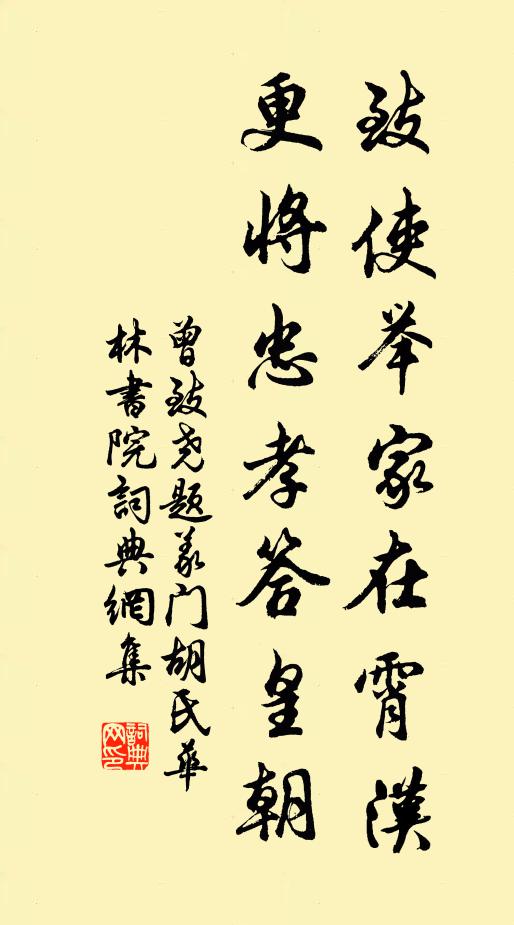 致使举家在霄漢
更将忠孝答皇朝
曾致尧题义门胡氏華
林書院詞典網集
詞典
网印